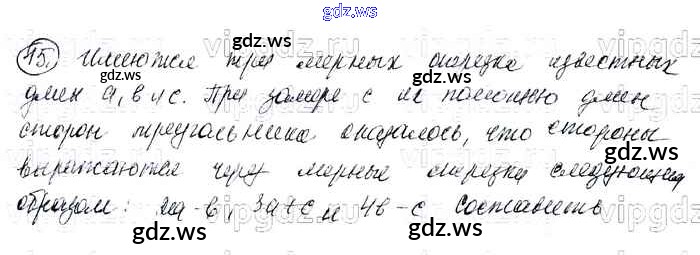 gdz.ws
15. Имеются три мерных отрезка известных
длин a, в и c. При замере с их помощью длин
сторон треугольника оказалось, что стороны
выражаются через мерные отрезки следующим
образом: 2a-в, 3a+c и 4в-c Составить
gdz.ws